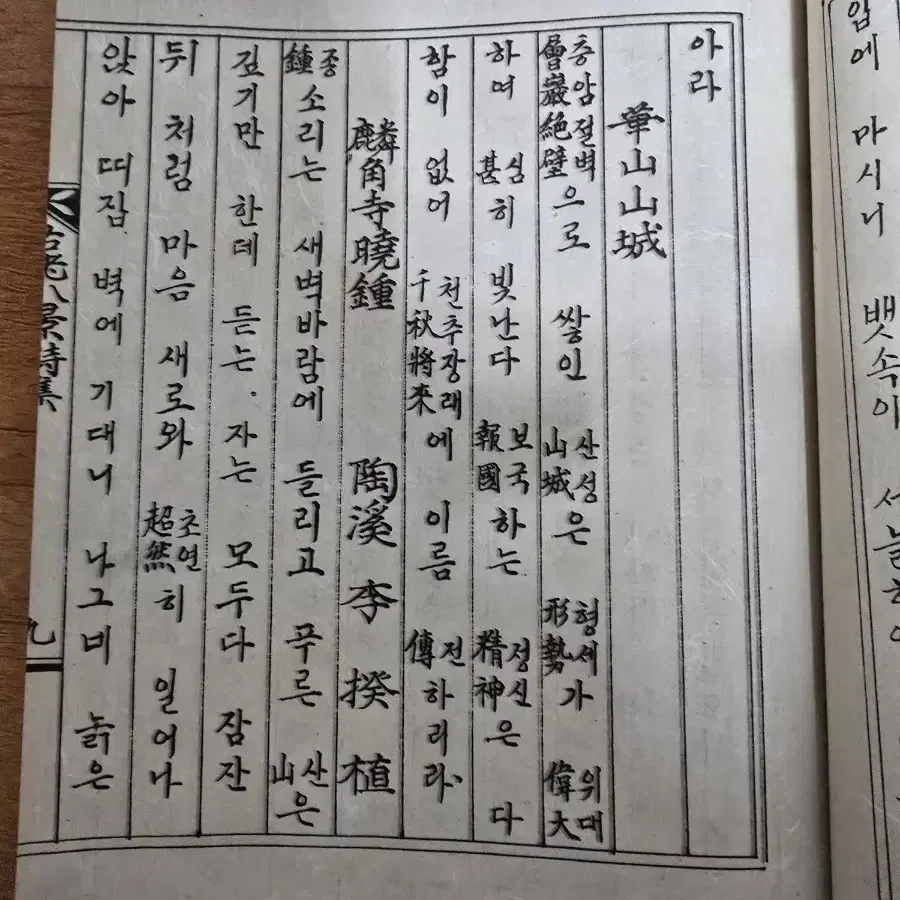 마시니 뱃속이
아라
華山山城
層巖絶壁층암절벽으로 쌓인 山城산성은 形勢형세가 偉大위대
하며 甚심히 빛난다 報國보국하는 精神정신은 다
함이 없어 千秋將來천추장래에 이름 傳전하리라
麟角寺曉鍾 陶溪 李揆植
鍾종소리는 새벽바람에 들리고 푸른 山산은
깊기만 한데 듣는 자는 모두다 잠잔
뒤 처럼 마음 새로와 超然초연히 일어나
앉아 띠집 벽에 기대니 나그비 늙은
古老八景詩集 九